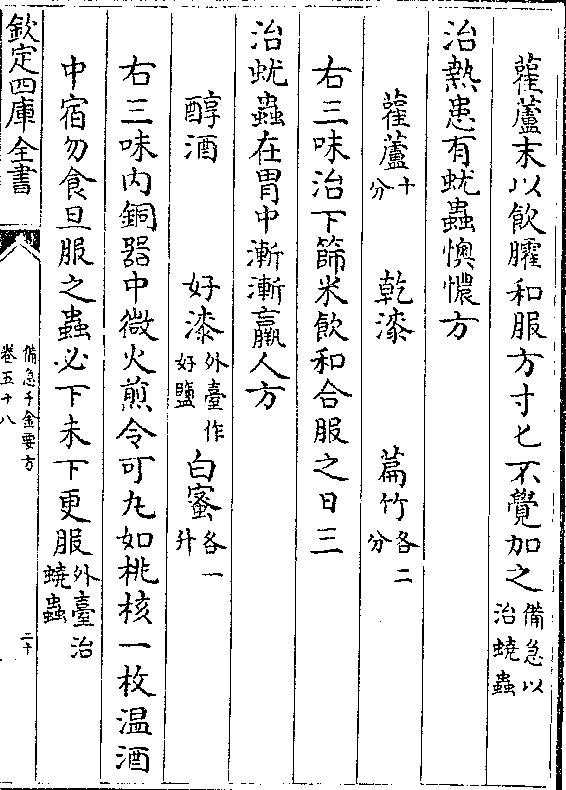 藋蘆末以飲臛和服方寸匕不覺加之備急以治蟯蟲
治熱患有蚘蟲懊憹方
藋蘆十分 乾漆 萹竹各二分
右三味治下篩米飲和合服之日三
治蚘蟲在胃中漸漸羸人方
醇酒 好漆外臺作好鹽 白蜜各一升
右三味内銅器中微火煎令可丸如桃核一枚温酒
中宿勿食旦服之蟲必下未下更服外臺治蟯蟲
欽定四庫全書
備急千金要方
卷五十八
二十